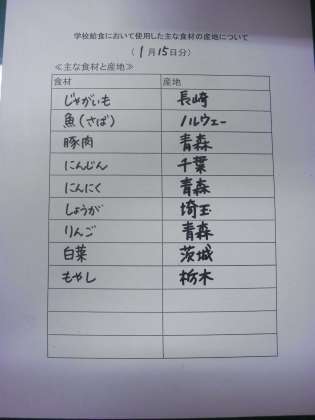 学校給食において使用した主な食材の産地について
（ 1月15日分）
≪主な食材と産地≫
食材 産地
じゃがいも 長崎
魚(さば) ノルウェー
豚肉 青森
にんじん 千葉
にんにく 青森
しょうが 埼玉
りんご 青森
白菜 茨城
もやし 栃木